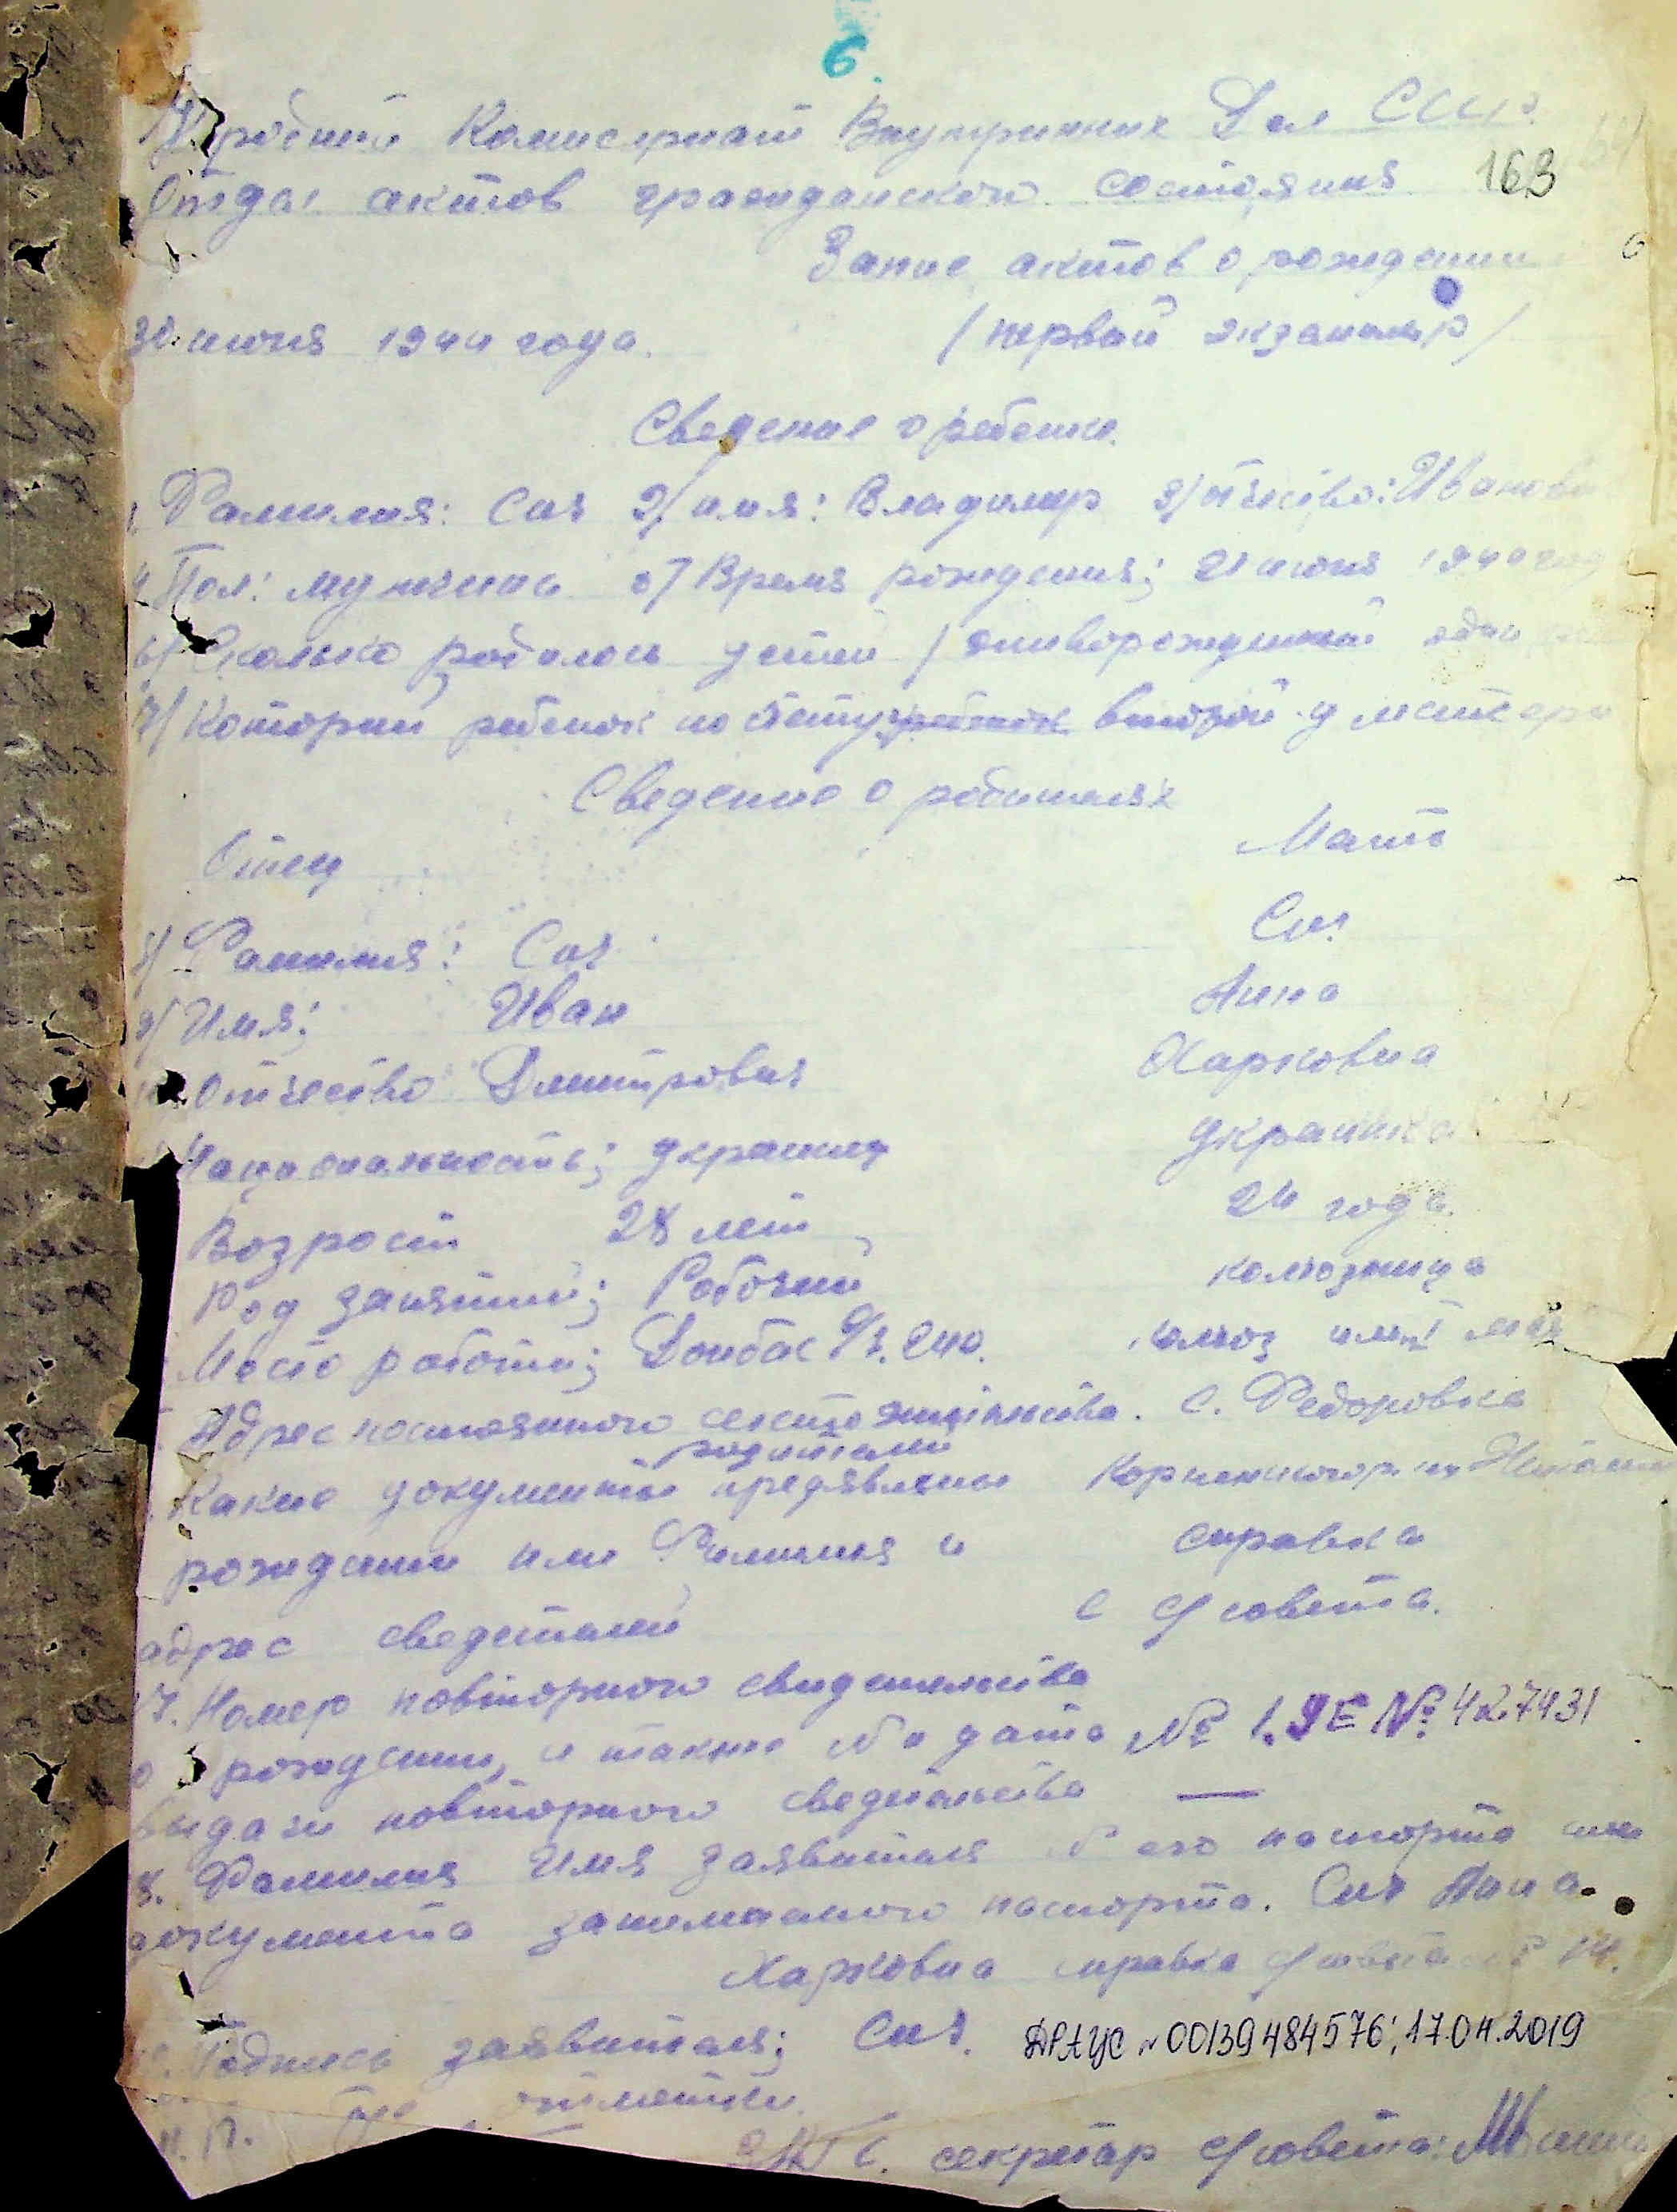 6
Народний Комисериат Внутриних Дел СССР
163
Отдел актов гражданского состояния
Запис актов о рождении
30 июня 1944 года. /первый экземпляр/
Сведение о ребенке.
1. Фамилия: Сыч 2/ имя: Владимир 3/ отчество: Иванови
4 Пол: мужчина 5/ Время рождения; 21 июня 1944 год
6/ Сколько родилось детей / живорожденный один
7/ Которий ребенок по счету ребенок второй у матери
Сведение о родителях
Отец Мать
8/ Фамилия: Сыч Сыч
9/ Имя; Иван Анна
Отчество Дмитрович Харковна
Национальность; украинец украинка
Возрост 28 лет 24 года.
Род занятий; Робочий колхозница
Место работи; Донбас 240. колхоз им.
Адрес постоянного место жительства. с. Федоровка
родителей
Какие документы предявлени
рождении или Фамилия и справка
адрес сведетелей с с/совета.
17. Номер повторного свидетельства
о рождении, а также № и дата № 1. УЕ № 427431
выдачи повторного сведетельства —
18. Фамилия Имя заявителя № его паспорта или
документа заменяемого паспорта. Сыч Анна.
Харковна справка с/совета
Подпись заявителя; Сыч. ДРАЦС № 00139484576; 17.04.2019
отметки
М.П. секретар с/совета: